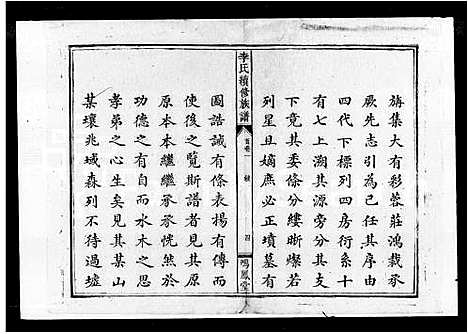 旃集大有彩蓉莊鴻裁承
厥先志引為己任其序由
四代下標列四房衍系十
有七上溯其源旁分其支
下竟其委條分縷晰燦若
列星且嫡庶必正墳墓有
李氏續修族譜
首卷一
四
鳴鳳堂
圖誥誡有條表楊有傳而
使後之覽斯譜者見其原
原本本繼繼承承恍然於
功德之有自而水木之思
孝弟之心生矣見其某山
某壤兆域森列不待過墟